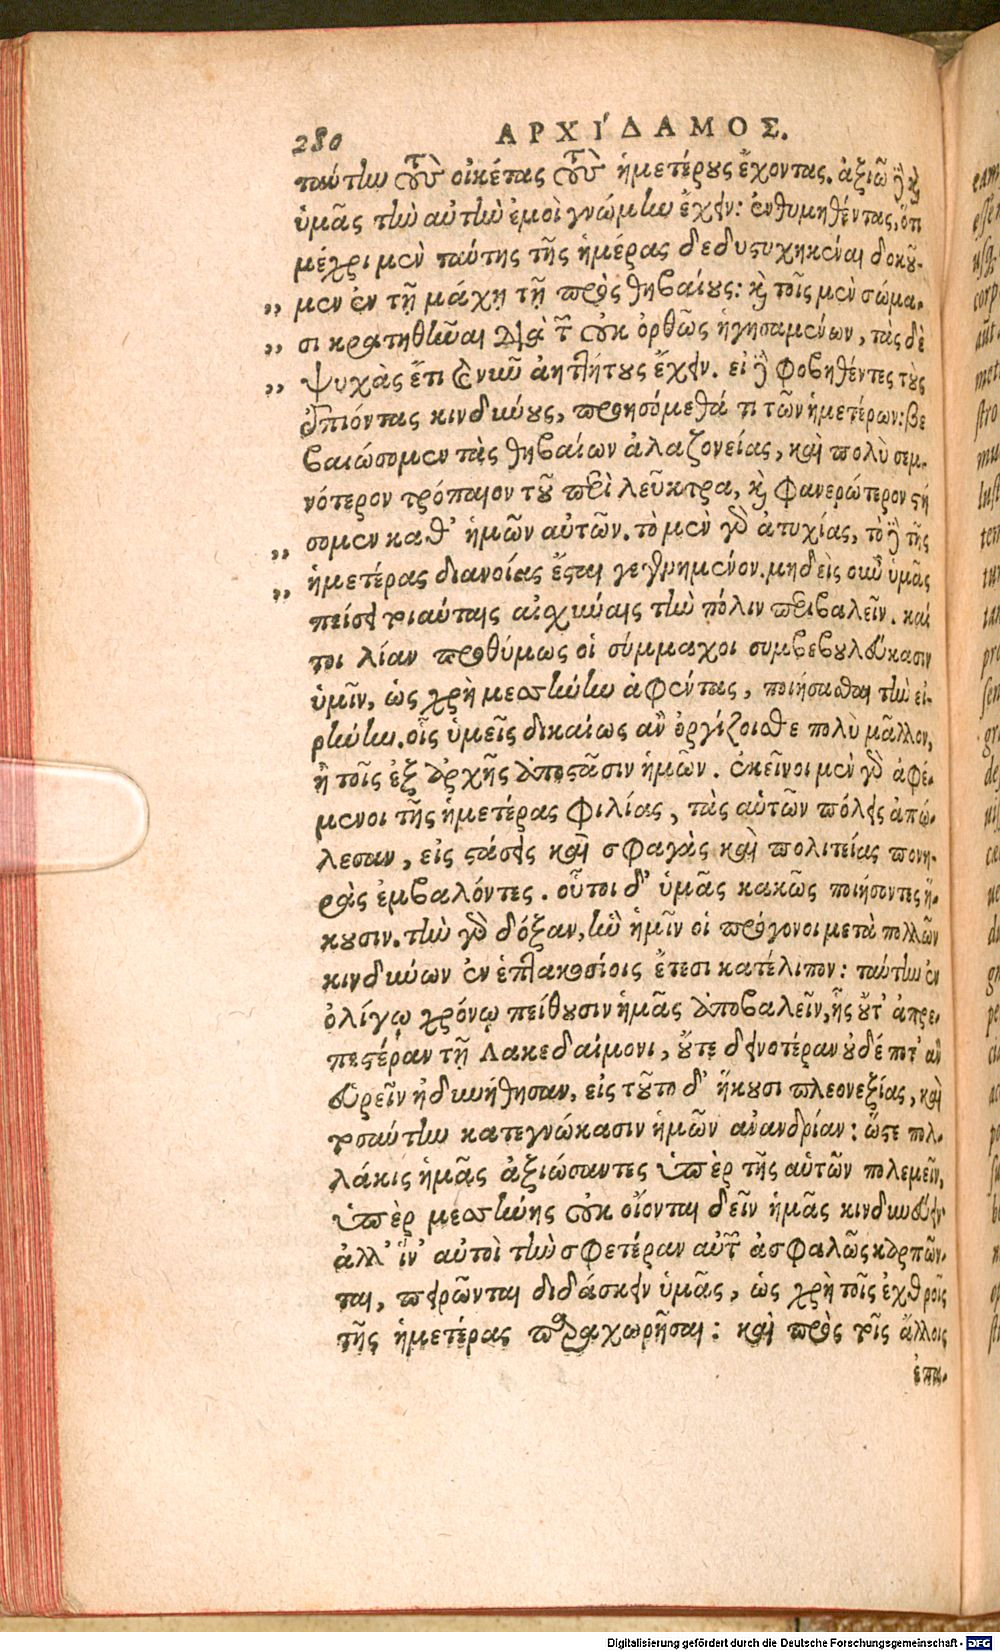 280 ΑΡΧΙ´ΔΑΜΟΣ.
ταύτην τοὺς οἰκέτας τοὺς ἡμετέρους ἔχοντας. ἀξιῶ δὲ καὶ
ὑμᾶς τὴν αὐτὴν ἐμοὶ γνώμην ἔχειν: ἐνθυμηθέντας, ὅτι
μέχρι μὲν ταύτης τῆς ἡμέρας δεδυστυχηκέναι δοκοῦ-
,, μεν ἐν τῇ μάχῃ τῇ πρὸς θηβαίους: καὶ τοῖς μὲν σώμα-
,, σι κρατηθῆναι διὰ τὸν οὐκ ὀρθῶς ἡγησαμένων, τὰς δὲ
,, ψυχὰς ἔτι καὶ νῦν ἀηττήτους ἔχειν. εἰ δὲ φοβηθέντες τοὺς
ἐπιόντας κινδύνους, προησόμεθά τι τῶν ἡμετέρων: βε
βαιώσομεν τὰς θηβαίων ἀλαζονείας, καὶ πολὺ σεμ-
νότερον τρόπαιον τοῦ περὶ λεῦκτρα, καὶ φανερώτερον στή
,, σομεν καθ' ἡμῶν αὐτῶν. τὸ μὲν γὰρ ἀτυχίας, τὸ δὲ τῆς
,, ἡμετέρας διανοίας ἔσται γεγενημένον. μηδεὶς οὖν ὑμᾶς
πείσει τοιαύταις αἰσχύναις τὴν πόλιν περιβαλεῖν. καί
τοι λίαν προθύμως οἱ σύμμαχοι συμβεβουλεύκασιν
ὑμῖν, ὡς χρὴ μεσσήνην ἀφέντας, ποιήσασθαι τὴν εἰ-
ρήνην. οἷς ὑμεῖς δικαίως ἂν ὀργίζοισθε πολὺ μᾶλλον,
ἢ τοῖς ἐξ ἀρχῆς ἀποστᾶσιν ἡμῶν. ἐκεῖνοι μὲν γὰρ ἀφέ-
μενοι τῆς ἡμετέρας φιλίας, τὰς αὑτῶν πόλεις ἀπώ-
λεσαν, εἰς στάσεις καὶ σφαγὰς καὶ πολιτείας πονη-
ρὰς ἐμβαλόντες. οὗτοι δ' ὑμᾶς κακῶς ποιήσοντες ἥ-
κουσιν. τὴν γὰρ δόξαν, ἣν ἡμῖν οἱ πρόγονοι μετὰ πολλῶν
κινδύνων ἐν ἑπτακοσίοις ἔτεσι κατέλιπον: ταύτην ἐν
ὀλίγῳ χρόνῳ πείθουσιν ἡμᾶς ἀποβαλεῖν, ἧς οὔτ' ἀπρε-
πεστέραν τῇ Λακεδαίμονι, οὔτε δεινοτέραν οὐδέ ποτ' ἂν
εὑρεῖν ἠδυνήθησαν, εἰς τοῦτο δ' ἥκουσι πλεονεξίας, καὶ
τοσαύτην κατεγνώκασιν ἡμῶν ἀνανδρίαν: ὥστε πολ-
λάκις ἡμᾶς ἀξιώσαντες ὑπὲρ τῆς αὑτῶν πολεμεῖν,
ὑπὲρ μεσσήνης οὐκ οἴονται δεῖν ἡμᾶς κινδυνεύειν
ἀλλ' ἵν' αὐτοὶ τὴν σφετέραν αὐτῶν ἀσφαλῶς καρπῶν-
ται, πειρῶνται διδάσκειν ὑμᾶς, ὡς χρὴ τοῖς ἐχθροῖς
τῆς ἡμετέρας παραχωρῆσαι: καὶ πρὸς τοῖς ἄλλοις
ἐπα-
Digitalisierung gefördert durch die Deutsche Forschungsgemeinschaft - DFG